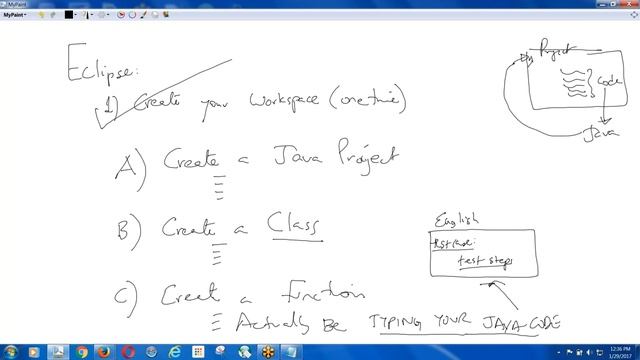 MyPaint
MyPaint
Project
Eclipse:
Code
1) Create your Workspace (onetime)
Java
A) Create a Java Project
English
B) Create a Class
test case:
test steps
C) Create a Function
Actually Be TYPING YOUR JAVA CODE
12:36 PM
1/29/2017